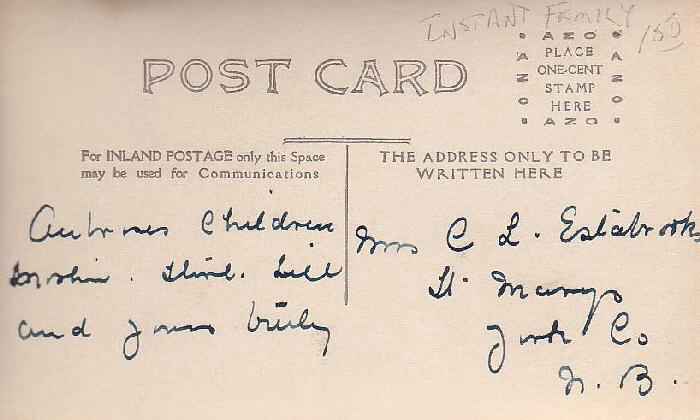 INSTANT FAMILY
1.50
POST CARD
AZO
PLACE
ONE-CENT
STAMP
HERE
AZO
AZO
AZO
For INLAND POSTAGE only this Space
may be used for Communications
THE ADDRESS ONLY TO BE
WRITTEN HERE
Children
and yours truly
Mrs C L. Estabrooks
St. Marys
York Co
N. B.